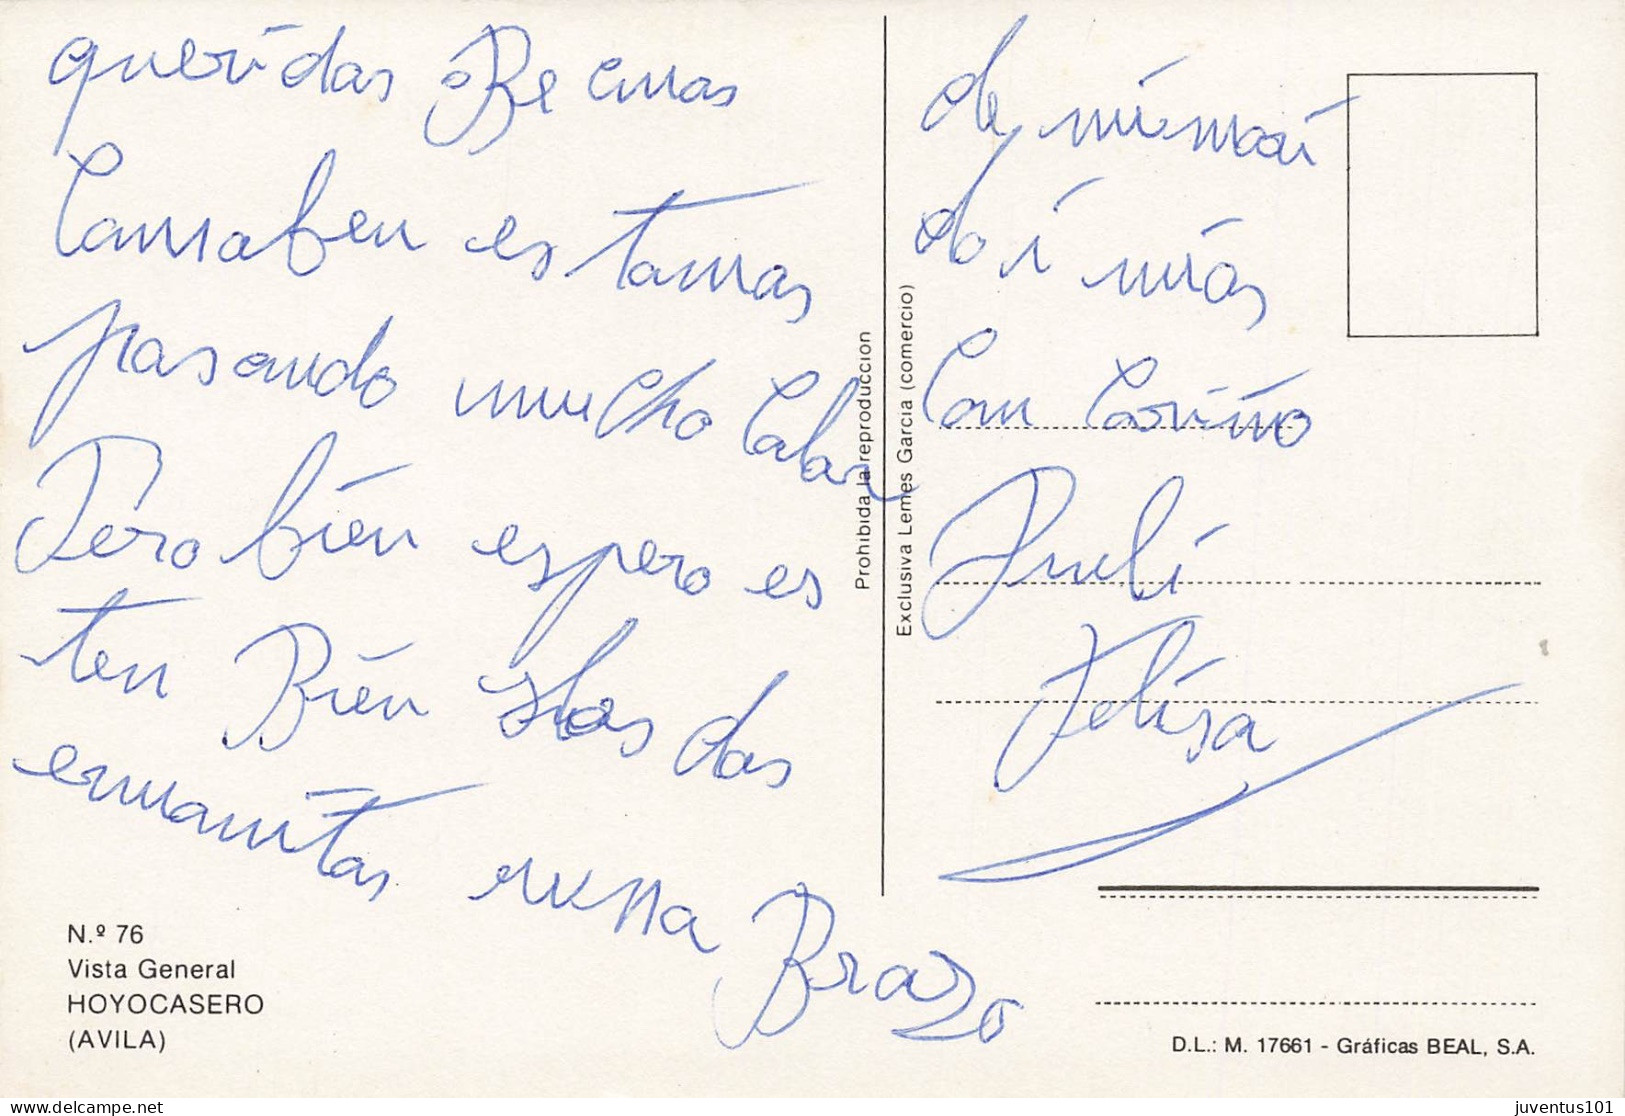 queridas Becinas
tanvben es tamas
pasando mucho Calar
Pero bien espero es
ten Bien las das
ermanitas
Brazo
de mi mari
do i mios
Con Coriño
Juli
Felisa
N.º 76
Vista General
HOYOCASERO
(AVILA)
Prohibida la reproducción
Exclusiva Lemes García (comercio)
D.L.: M. 17661 - Gráficas BEAL, S.A.
juventus101